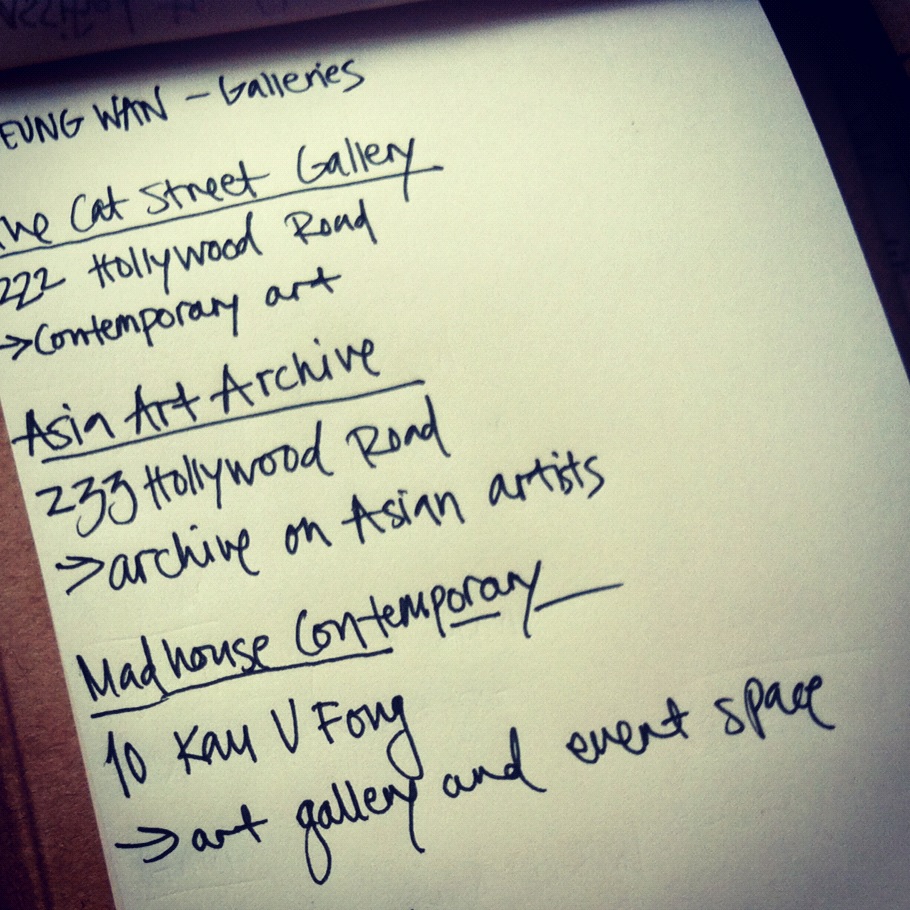 EUNG WAN - Galleries
The Cat Street Gallery
222 Hollywood Road
→Contemporary art
Asia Art Archive
233 Hollywood Road
→archive on Asian artists
Madhouse Contemporary
10 Kau U Fong
→art gallery and event space